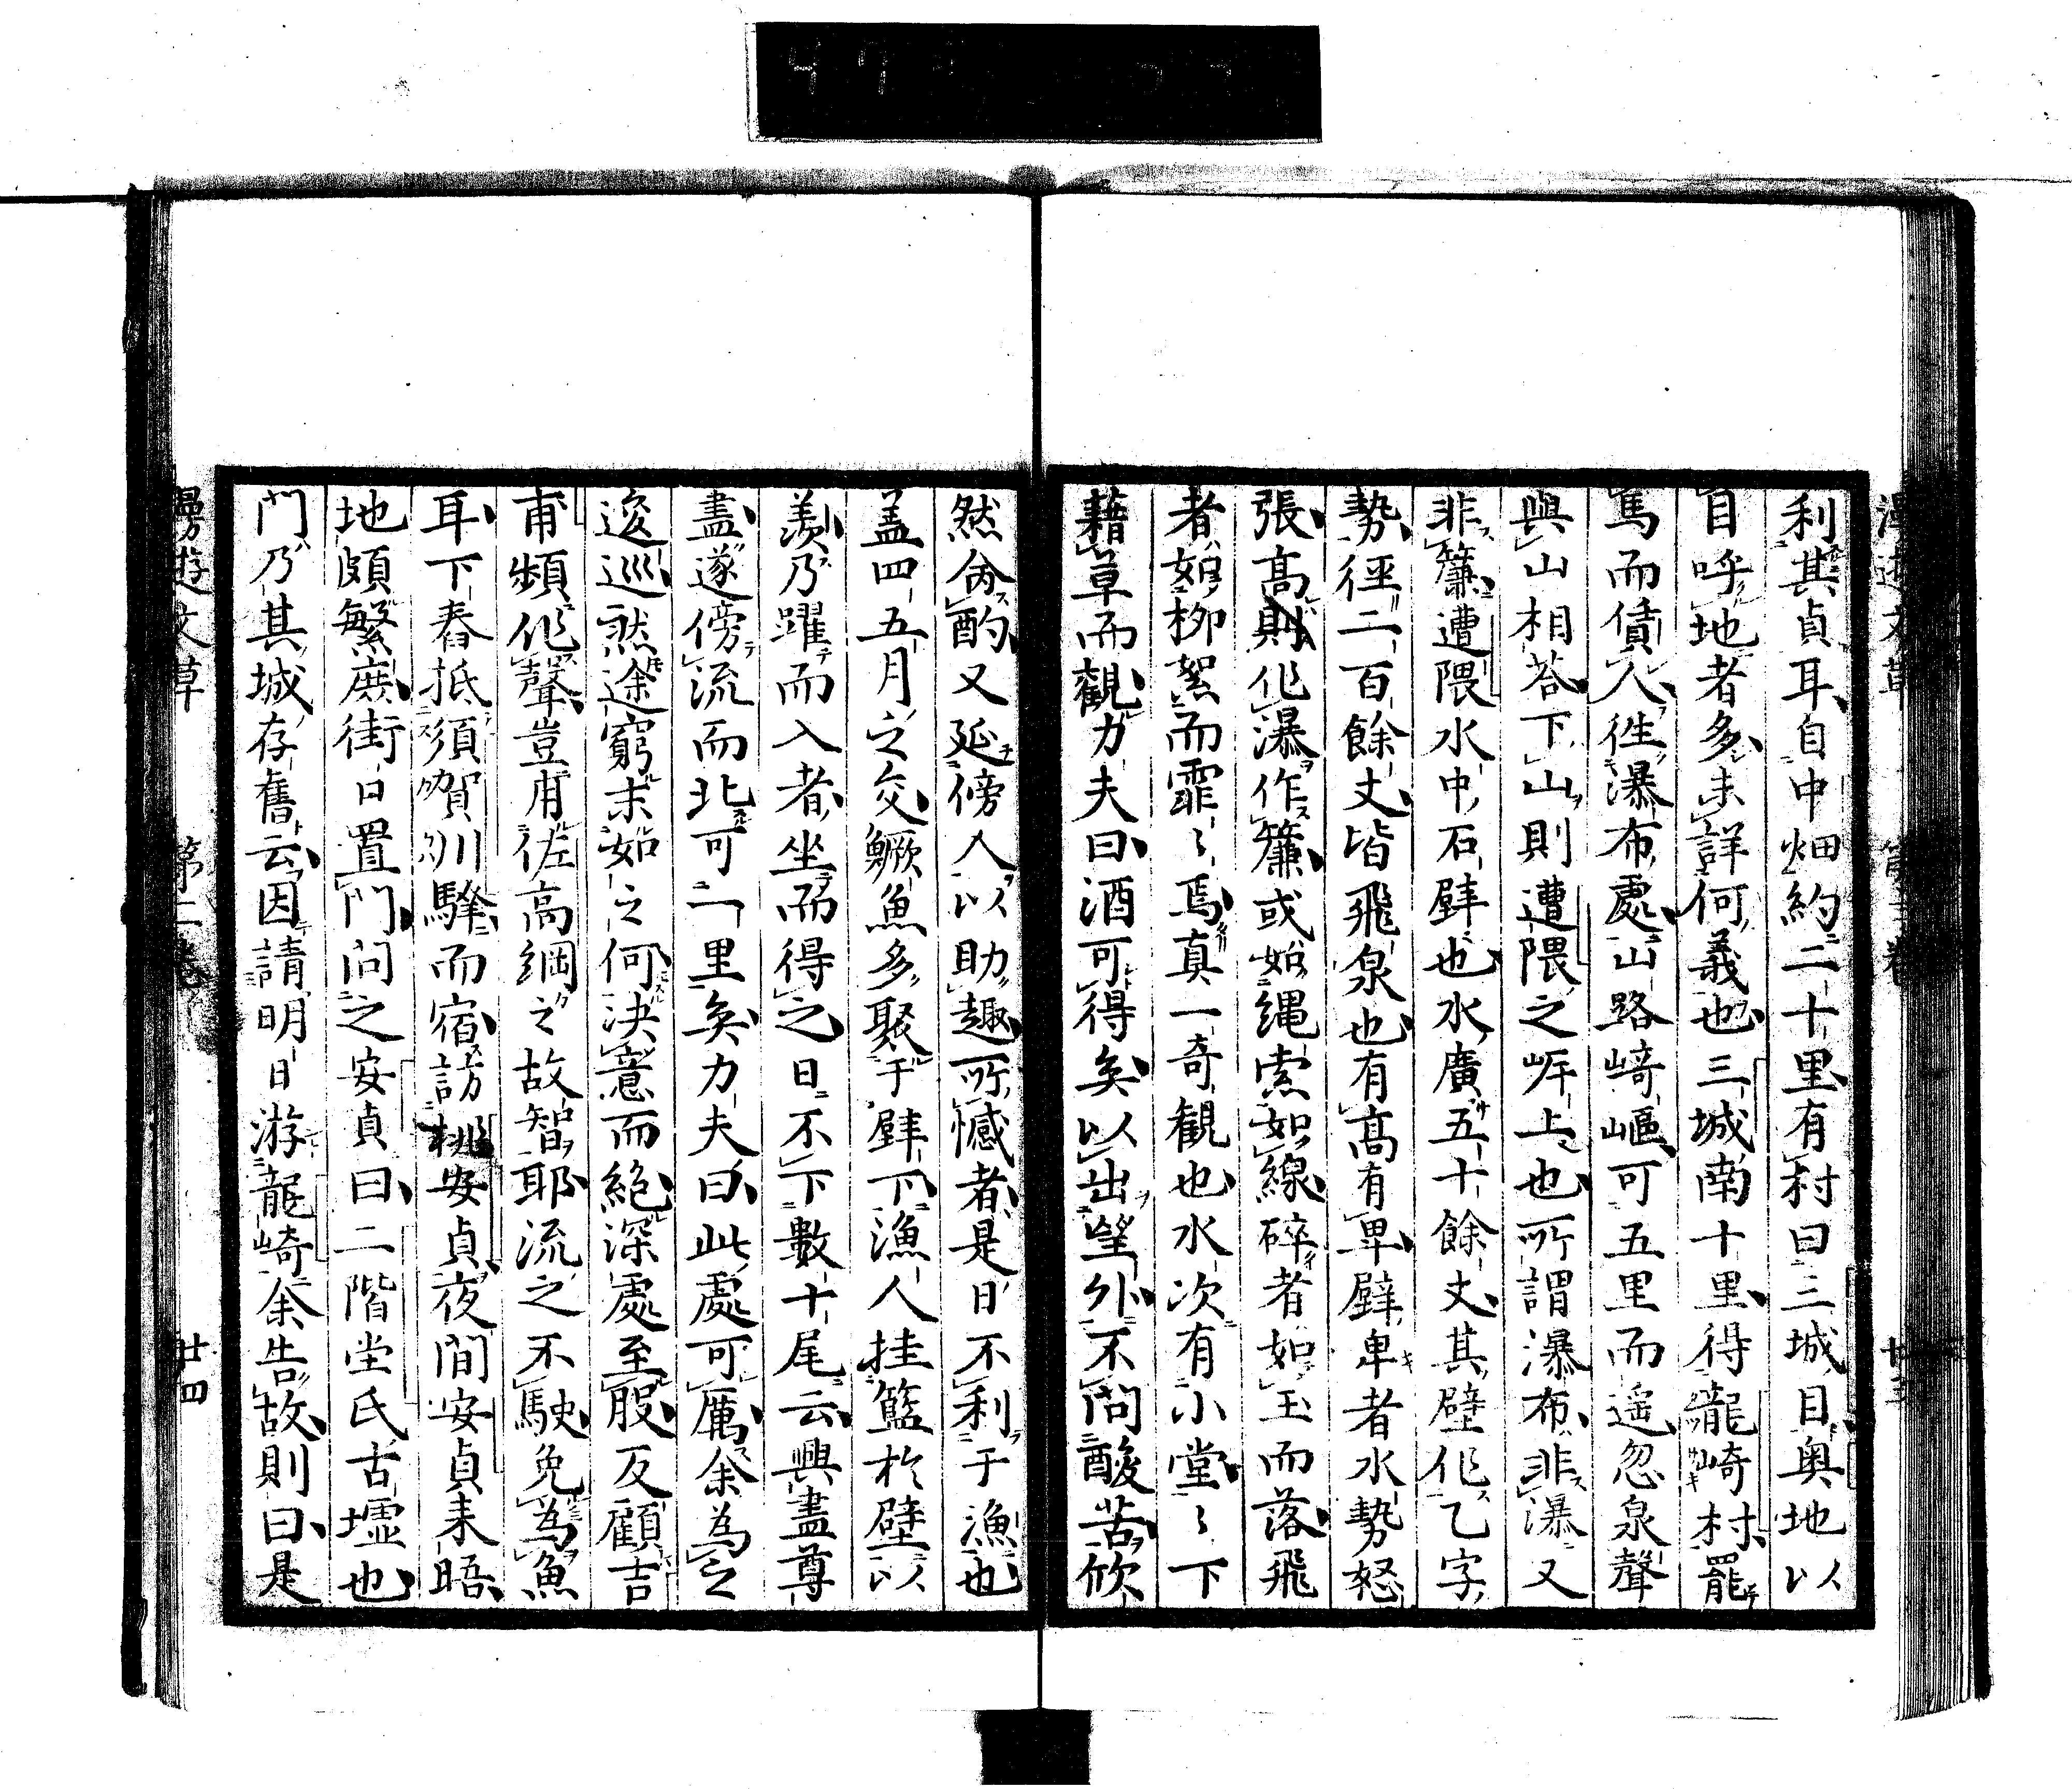 利其貞耳自中畑約二十里有村曰三城目奥地以
目呼地者多未詳何義也三城南十里得瀧崎村罷
馬而債人徃瀑布處山路崎嶇可五里而遥忽泉聲
與山相荅下山則遭隈之岸上也所謂瀑布非瀑又
非簾遭隈水中石壁也水廣五十餘丈其壁作乙字
勢徑二百餘丈皆飛泉也有高有卑壁卑者水勢怒
張高則作瀑作簾或如繩索如線碎者如玉而落飛
者如柳絮而霏〻焉真一奇觀也水次有小堂〻下
藉草而觀力夫曰酒可得矣以出望外不問酸苦欣
然命酌又延傍人以助趣所憾者是日不利于漁也
盖四五月之交鱖魚多聚于壁下漁人挂籃於壁以
羨乃躍而入者坐而得之日不下數十尾云興盡尊
盡遂傍流而北可二里矣力夫曰此處可厲余為之
逡巡然途窮末如之何決意而絶深處至股反顧吉
甫頻作聲豈用佐高綱之故智耶流之不駛免為魚
耳下舂抵須賀川驛而宿訪桃安貞夜間安貞来晤
地頗繁庶街口置門问之安貞曰二階堂氏古墟也
門乃其城存舊云因請明日游龍崎余告故則曰是
漫遊文草 第二卷 廿四